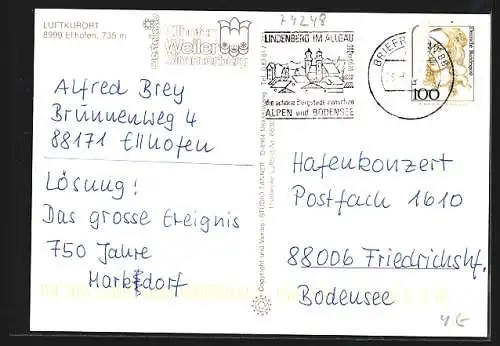 LUFTKURORT
8999 Ellhofen, 735 m
Weiler
Simmerberg
74248
LINDENBERG IM ALLGÄU
die schöne Bergstadt zwischen
ALPEN und BODENSEE
BRIEFZ
100
Alfred Brey
Brunnenweg 4
88171 Ellhofen
Lösung!
Das grosse Ereignis
750 Jahre
Markdorf
Copyright und Verlag: STUDIO TANNER
Hafenkonzert
Postfach 1610
88006 Friedrichshf.
Bodensee
4 E